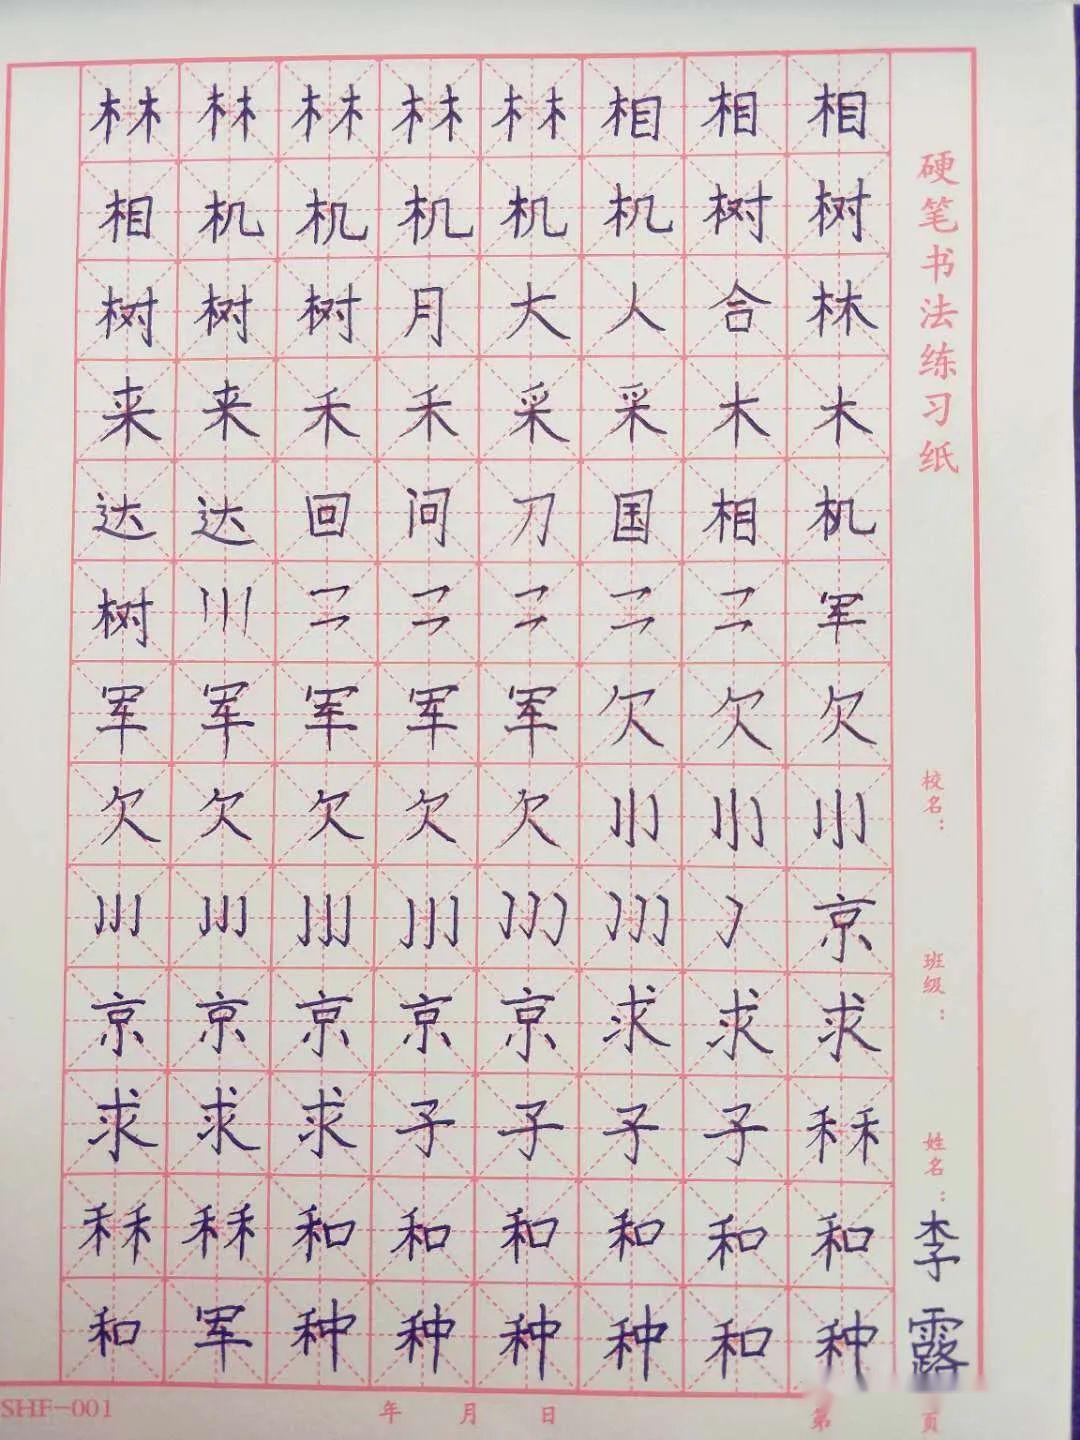 林 林 林 林 林 相 相 相
相 机 机 机 机 机 树 树
树 树 树 月 大 人 合 林
来 来 禾 禾 采 采 木 木
达 达 回 问 刀 国 相 机
树 军
军 军 军 军 军 欠 欠 欠
欠 欠 欠 欠 欠 小 小 小
京
京 京 京 京 京 求 求 求
求 求 求 子 子 子 子
和 和 和 和 和 和
和 军 种 种 种 种 和 种
硬笔书法练习纸
校名：
班级：
姓名：李露
SHF-001
年 月 日
第 页